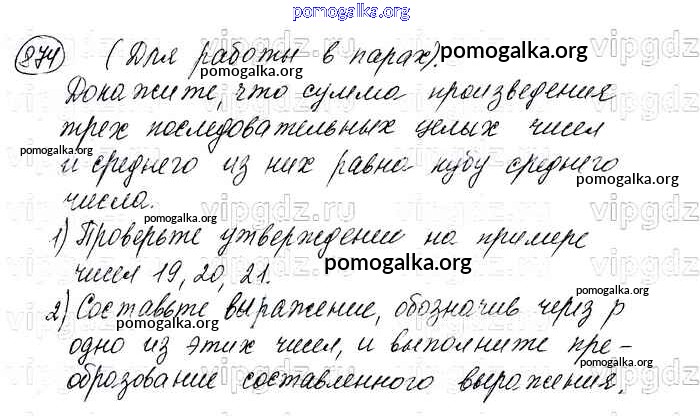 pomogalka.org
874 (Для работы в парах).
Докажите, что сумма произведения
трех последовательных целых чисел
и среднего из них равна кубу среднего
числа.
1) Проверьте утверждение на примере
чисел 19, 20, 21.
2) Составьте выражение, обозначив через p
одно из этих чисел, и выполните пре-
образование составленного выражения.
pomogalka.org
pomogalka.org
pomogalka.org
pomogalka.org
pomogalka.org
pomogalka.org
pomogalka.org
pomogalka.org
pomogalka.org
pomogalka.org
vipgdz.ru